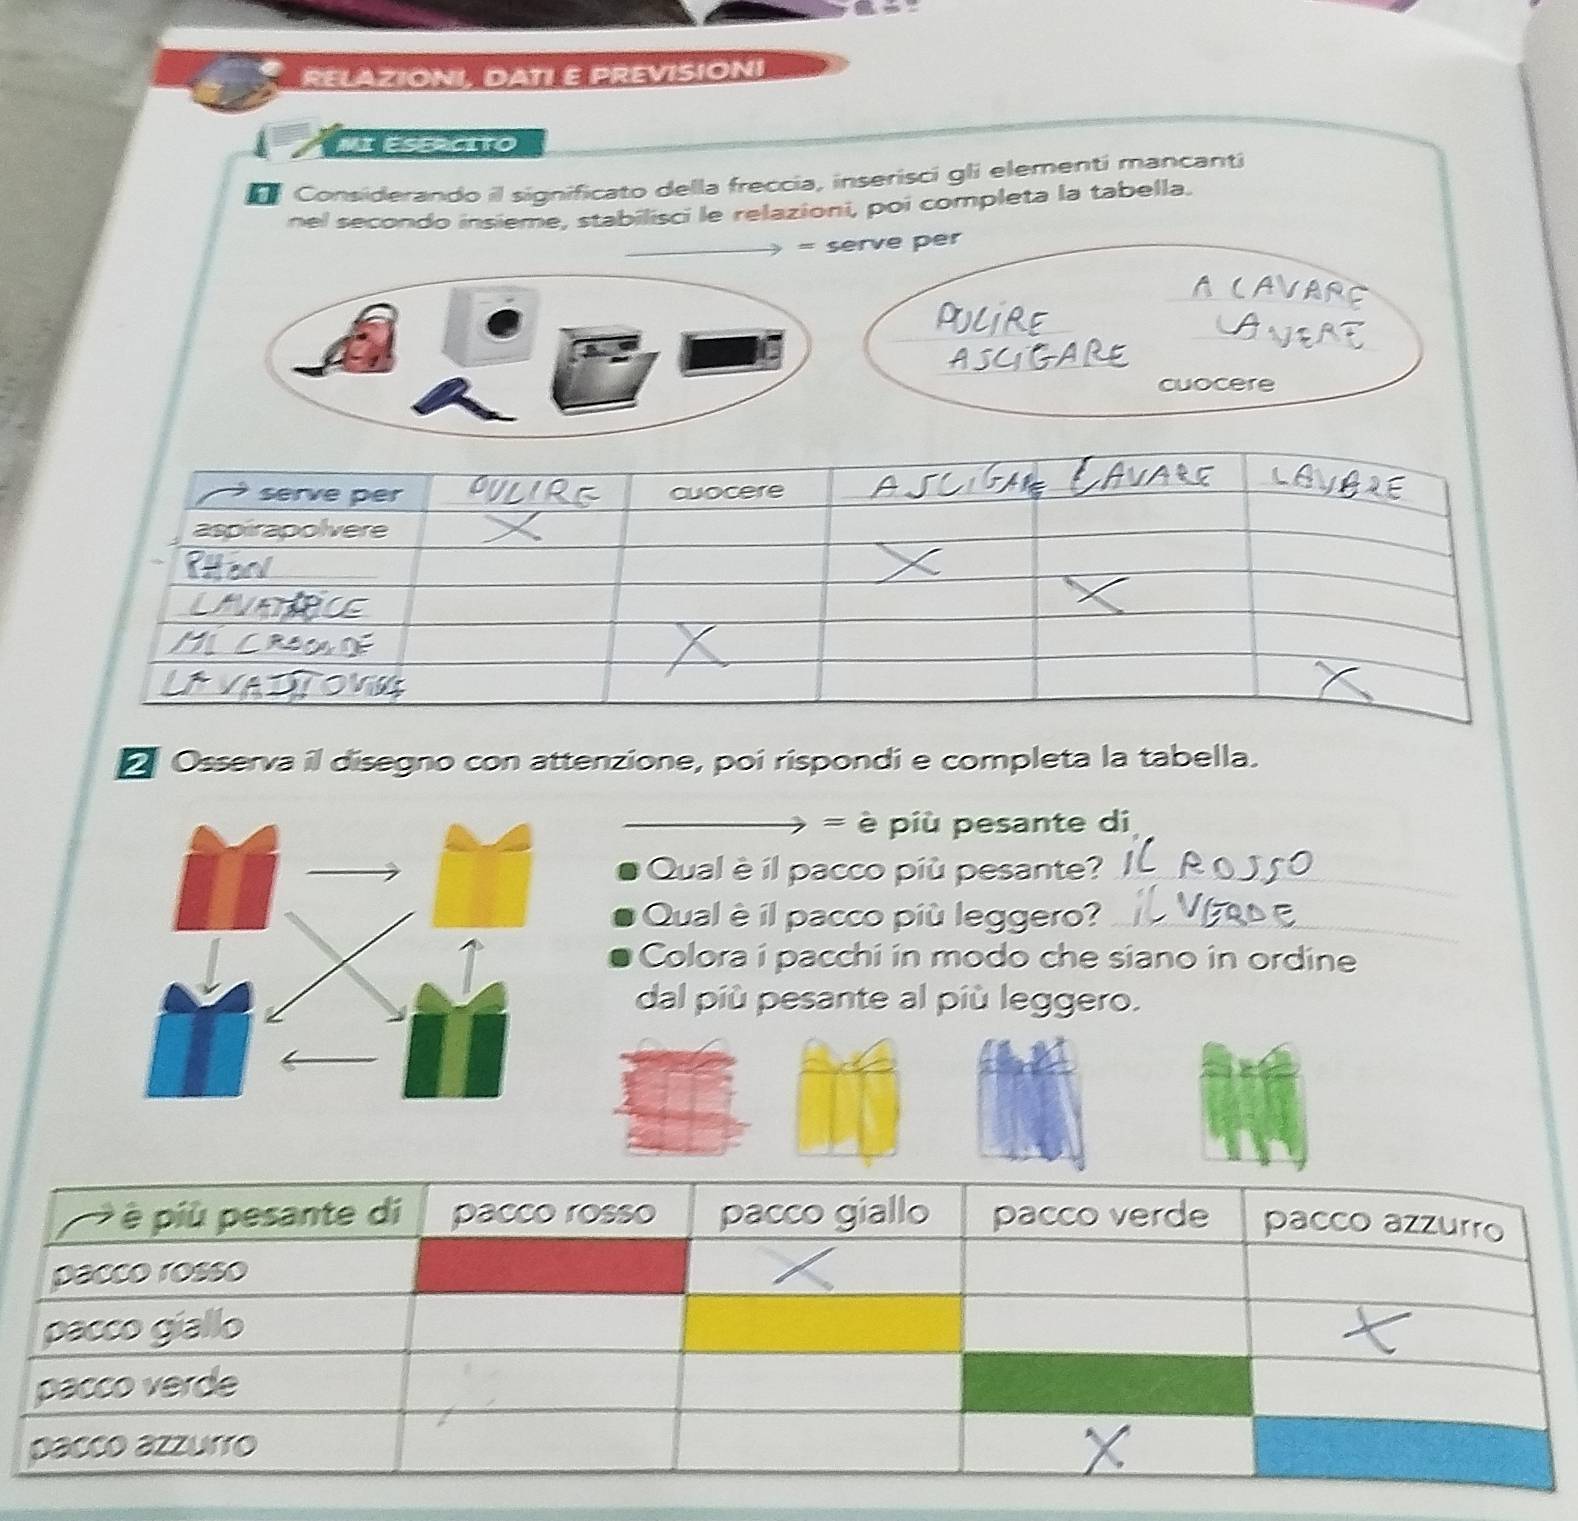 RELAZIONI, DATI E PREVISIONI
MI ESERCITO
1 Considerando il significato della freccia, inserisci gli elementi mancanti
nel secondo insieme, stabilisci le relazioni, poi completa la tabella.
= serve per
A LAVARE
PULIRE
LAVERE
ASCIGARE
cuocere
serve per PULIRE cuocere ASCIGARE LAVARE LAVARE
aspirapolvere X
PHON X
LAVATRICE X
MICROONDE X
X
2 Osserva il disegno con attenzione, poi rispondi e completa la tabella.
= è più pesante di
Qual è il pacco più pesante? IL ROSSO
Qual è il pacco più leggero? IL VERDE
Colora i pacchi in modo che siano in ordine
dal più pesante al più leggero.
è più pesante di pacco rosso pacco giallo pacco verde pacco azzurro
pacco rosso X
pacco giallo X
pacco verde
pacco azzurro X